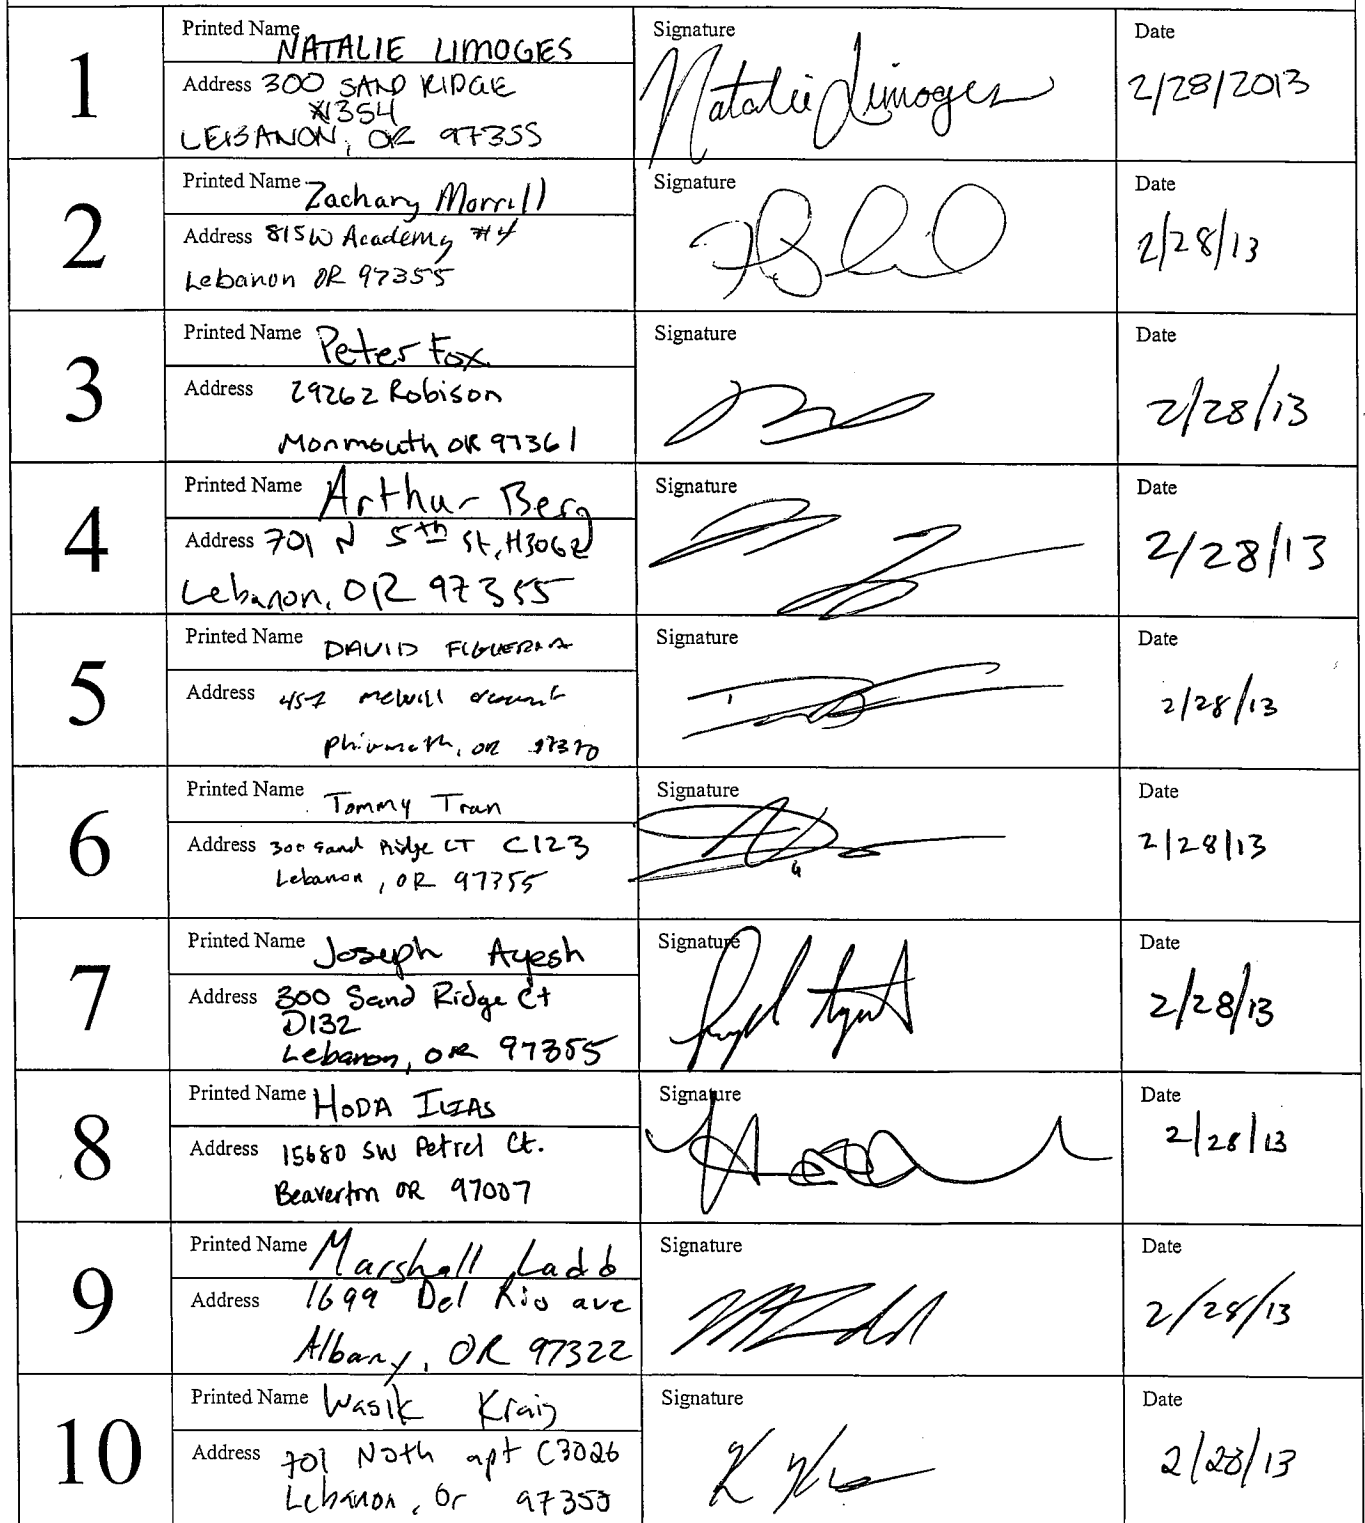 1
Printed Name NATALIE LIMOGES
Address 300 SAND RIDGE
#354
LEBANON, OR 97355
Signature Natalie Limoges
Date
2/28/2013
2
Printed Name Zachary Morrill
Address 815 W Academy #4
Lebanon OR 97355
Signature
Date
2/28/13
3
Printed Name Peter Fox
Address 29262 Robison
Monmouth OR 97361
Signature
Date
2/28/13
4
Printed Name Arthur Berg
Address 701 N 5th St, H3062
Lebanon, OR 97355
Signature
Date
2/28/13
5
Printed Name DAVID FIGUEROA
Address 457
OR 97370
Signature
Date
2/28/13
6
Printed Name Tommy Tran
Address 300 Sand Ridge CT C123
Lebanon, OR 97355
Signature
Date
2/28/13
7
Printed Name Joseph Ayesh
Address 300 Sand Ridge Ct
D132
Lebanon, OR 97355
Signature
Date
2/28/13
8
Printed Name HODA ILIAS
Address 15680 SW Petrel Ct.
Beaverton OR 97007
Signature
Date
2/28/13
9
Printed Name Marshall Ladd
Address 1699 Del Rio ave
Albany, OR 97322
Signature
Date
2/28/13
10
Printed Name Wasik Kraig
Address 701 Noth apt C3026
Lebanon, Or 97355
Signature
Date
2/28/13